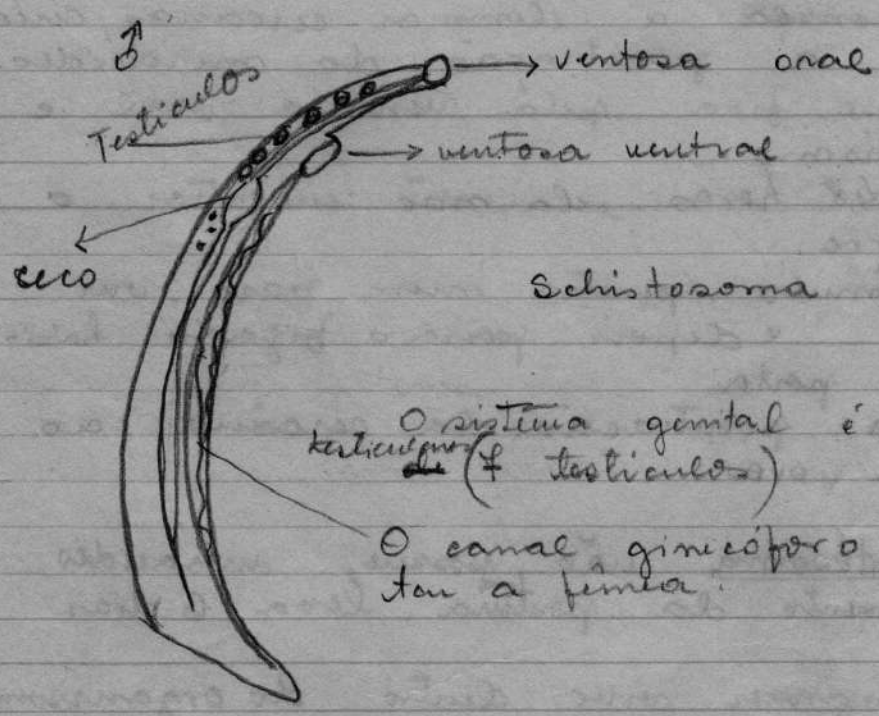 ♂
Testiculos
ventosa oral
ventosa ventral
ceco
Schistosoma
O sistema genital é
testiculos
(7 testiculos)
O canal ginecóforo
a fêmea.